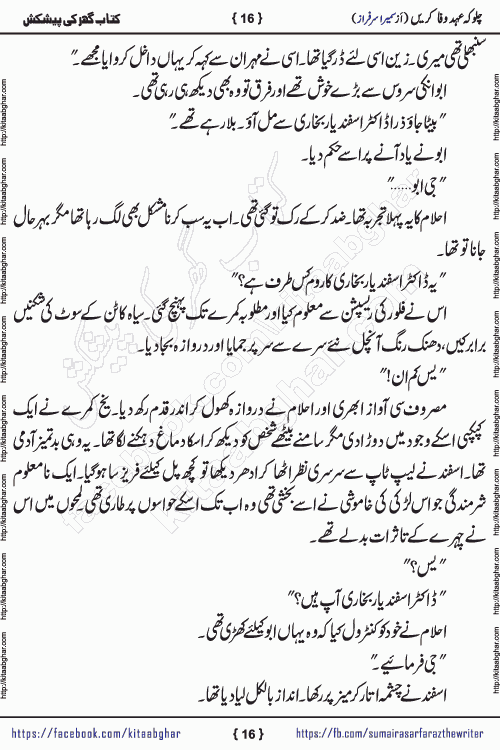 چلو کہ عہد وفا کریں (از سمیرا سرفراز)
{ 16 }
کتاب گھر کی پیشکش
سنبھلی تھی میری۔ زین اسی لئے ڈر گیا تھا۔ اسی نے مہران سے کہہ کر یہاں داخل کروایا مجھے۔"
ابو انکی سروس سے بڑے خوش تھے اور فرق تو وہ بھی دیکھ ہی رہی تھی۔
"بیٹا جاؤ ذرا ڈاکٹر اسفند یار بخاری سے مل آؤ۔ بلا رہے تھے۔"
ابو نے یاد آنے پر اسے حکم دیا۔
"جی ابو......"
احلام کا یہ پہلا تجربہ تھا۔ ضد کر کے رک تو گئی تھی۔ اب یہ سب کرنا مشکل بھی لگ رہا تھا مگر بہر حال
جانا تو تھا۔
"یہ ڈاکٹر اسفند یار بخاری کا روم کس طرف ہے؟"
اس نے فلور کی ریسپشن سے معلوم کیا اور مطلوبہ کمرے تک پہنچ گئی۔ سیاہ کاٹن کے سوٹ کی شکنیں
برابر کیں، دھنک رنگ آنچل نئے سرے سے سر پر جمایا اور دروازہ بجا دیا۔
"یس کم ان!"
مصروف سی آواز ابھری اور احلام نے دروازہ کھول کر اندر قدم رکھ دیا۔ یخ کمرے نے ایک
کپکپی اسکے وجود میں دوڑا دی مگر سامنے بیٹھے شخص کو دیکھ کر اسکا دماغ دہکنے لگا تھا۔ یہ وہی بدتمیز آدمی
تھا۔ اسفند نے لیپ ٹاپ سے سرسری نظر اٹھا کر ادھر دیکھا تو کچھ پل کیلئے فریز سا ہو گیا۔ ایک نامعلوم
شرمندگی جو اس لڑکی کی خاموشی نے اسے بخشی تھی وہ اب تک اسکے حواسوں پر طاری تھی۔ لمحوں میں اس
نے چہرے کے تاثرات بدلے تھے۔
"یس؟"
"ڈاکٹر اسفند یار بخاری آپ ہیں؟"
احلام نے خود کو کنٹرول کیا کہ وہ یہاں ابو کیلئے کھڑی تھی۔
"جی فرمائیے۔"
اسفند نے چشمہ اتار کر میز پر رکھا۔ انداز بالکل لیا دیا تھا۔
https://facebook.com/kitaabghar
{ 16 }
https://fb.com/sumairasarfarazthewriter
http://kitaabghar.com